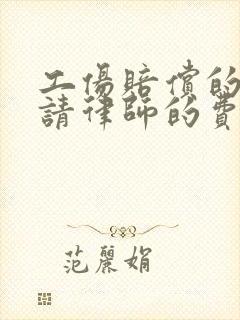 工傷賠償的
請律師的費
范麗娟